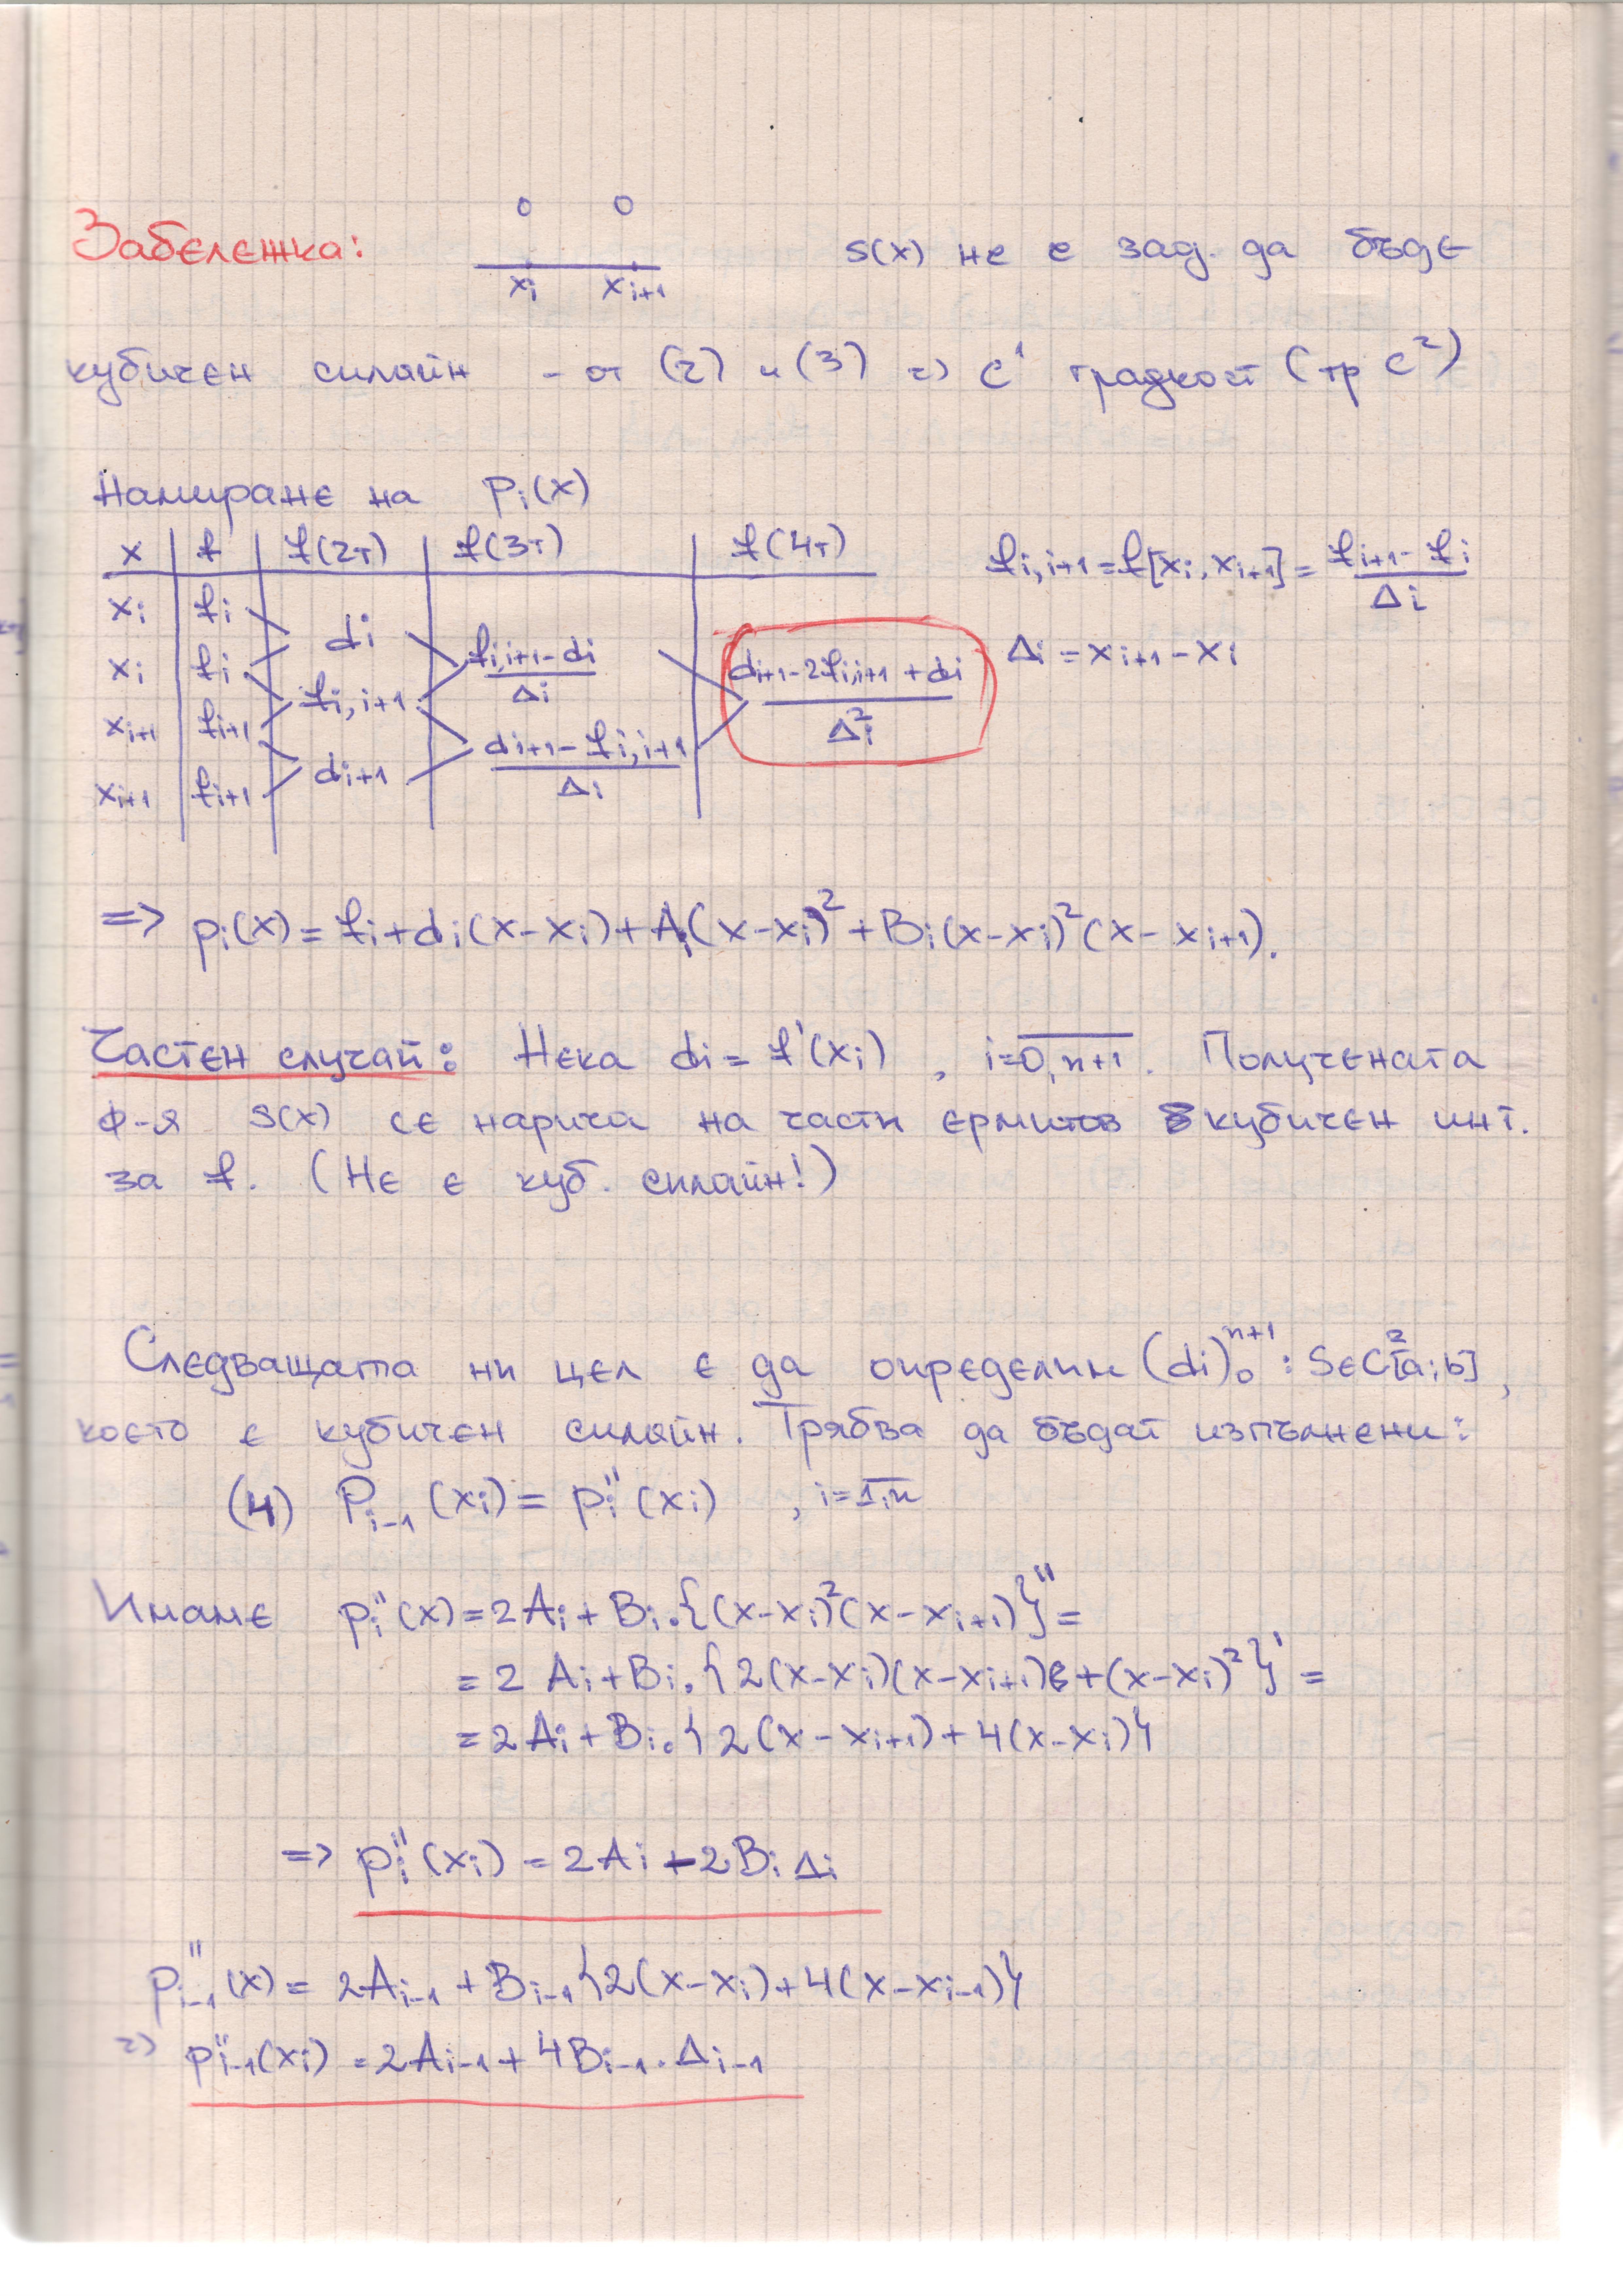 Забележка: o o s(x) не е зад. да бъде
xi xi+1
кубичен сплайн - от (2) и (3) => C¹ гладкост (тр C²)
Намиране на Pi(x)
x | f | f(2т) | f(3т) | f(4т) fi,i+1 = f[xi, xi+1] = (fi+1 - fi)/Δi
xi | fi
di (fi,i+1 - di)/Δi (di+1 - 2fi,i+1 + di)/Δi² Δi = xi+1 - xi
xi | fi
fi,i+1
xi+1 | fi+1 (di+1 - fi,i+1)/Δi
di+1
xi+1 | fi+1
=> pi(x) = fi + di(x-xi) + Ai(x-xi)² + Bi(x-xi)²(x-xi+1).
Частен случай: Нека di = f'(xi) , i=0,n+1. Получената
ф-я s(x) се нарича на части ермитов кубичен инт.
за f. (Не е куб. сплайн!)
Следващата ни цел е да определим (di)₀ⁿ⁺¹ : S∈C²[a;b],
което е кубичен сплайн. Трябва да бъдат изпълнени:
(4) Pi-1 (xi) = pi'' (xi) , i=1,n
Имаме pi''(x) = 2Ai + Bi.{(x-xi)²(x-xi+1)}'' =
= 2 Ai + Bi.{2(x-xi)(x-xi+1) + (x-xi)²}' =
= 2Ai + Bi.{2(x-xi+1) + 4(x-xi)}
=> pi''(xi) = 2Ai - 2Bi Δi
pi-1''(x) = 2Ai-1 + Bi-1{2(x-xi) + 4(x-xi-1)}
=> pi-1''(xi) = 2Ai-1 + 4Bi-1.Δi-1